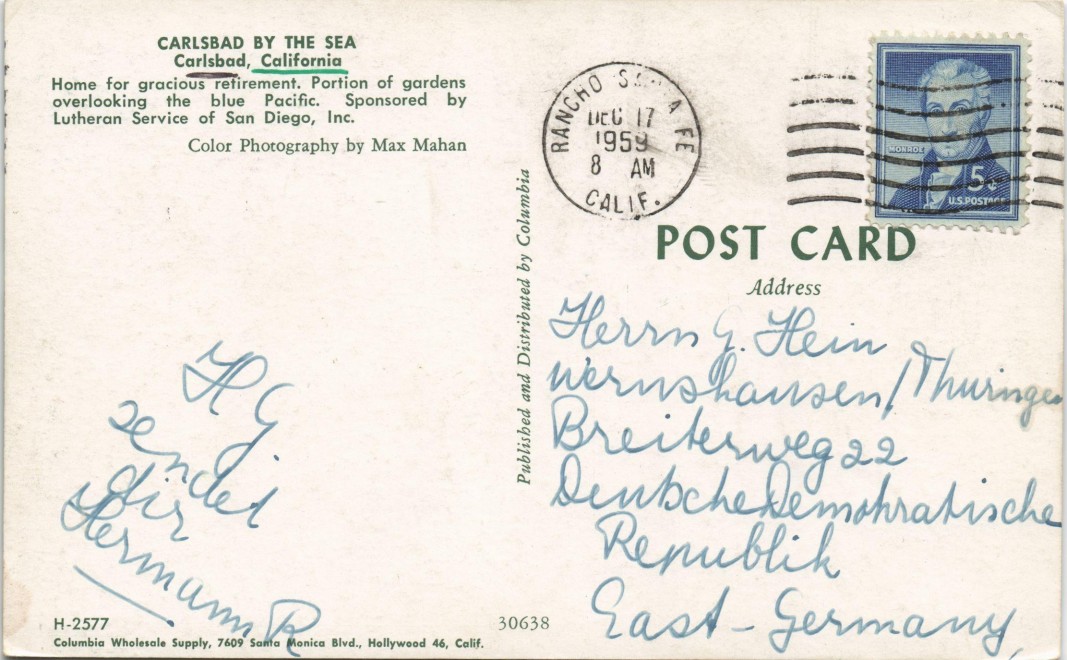 CARLSBAD BY THE SEA
Carlsbad, California
Home for gracious retirement. Portion of gardens
overlooking the blue Pacific. Sponsored by
Lutheran Service of San Diego, Inc.
Color Photography by Max Mahan
H G
sendet
dir
Hermann R
H-2577
Columbia Wholesale Supply, 7609 Santa Monica Blvd., Hollywood 46, Calif.
Published and Distributed by Columbia
30638
RANCHO SANTA FE
DEC 17
1959
8 AM
CALIF.
MONROE
5¢
U.S. POSTAGE
POST CARD
Address
Herrn G. Hein
Wernshausen/Thüringen
Breiterweg 22
Deutsche Demokratische
Republik
East-Germany